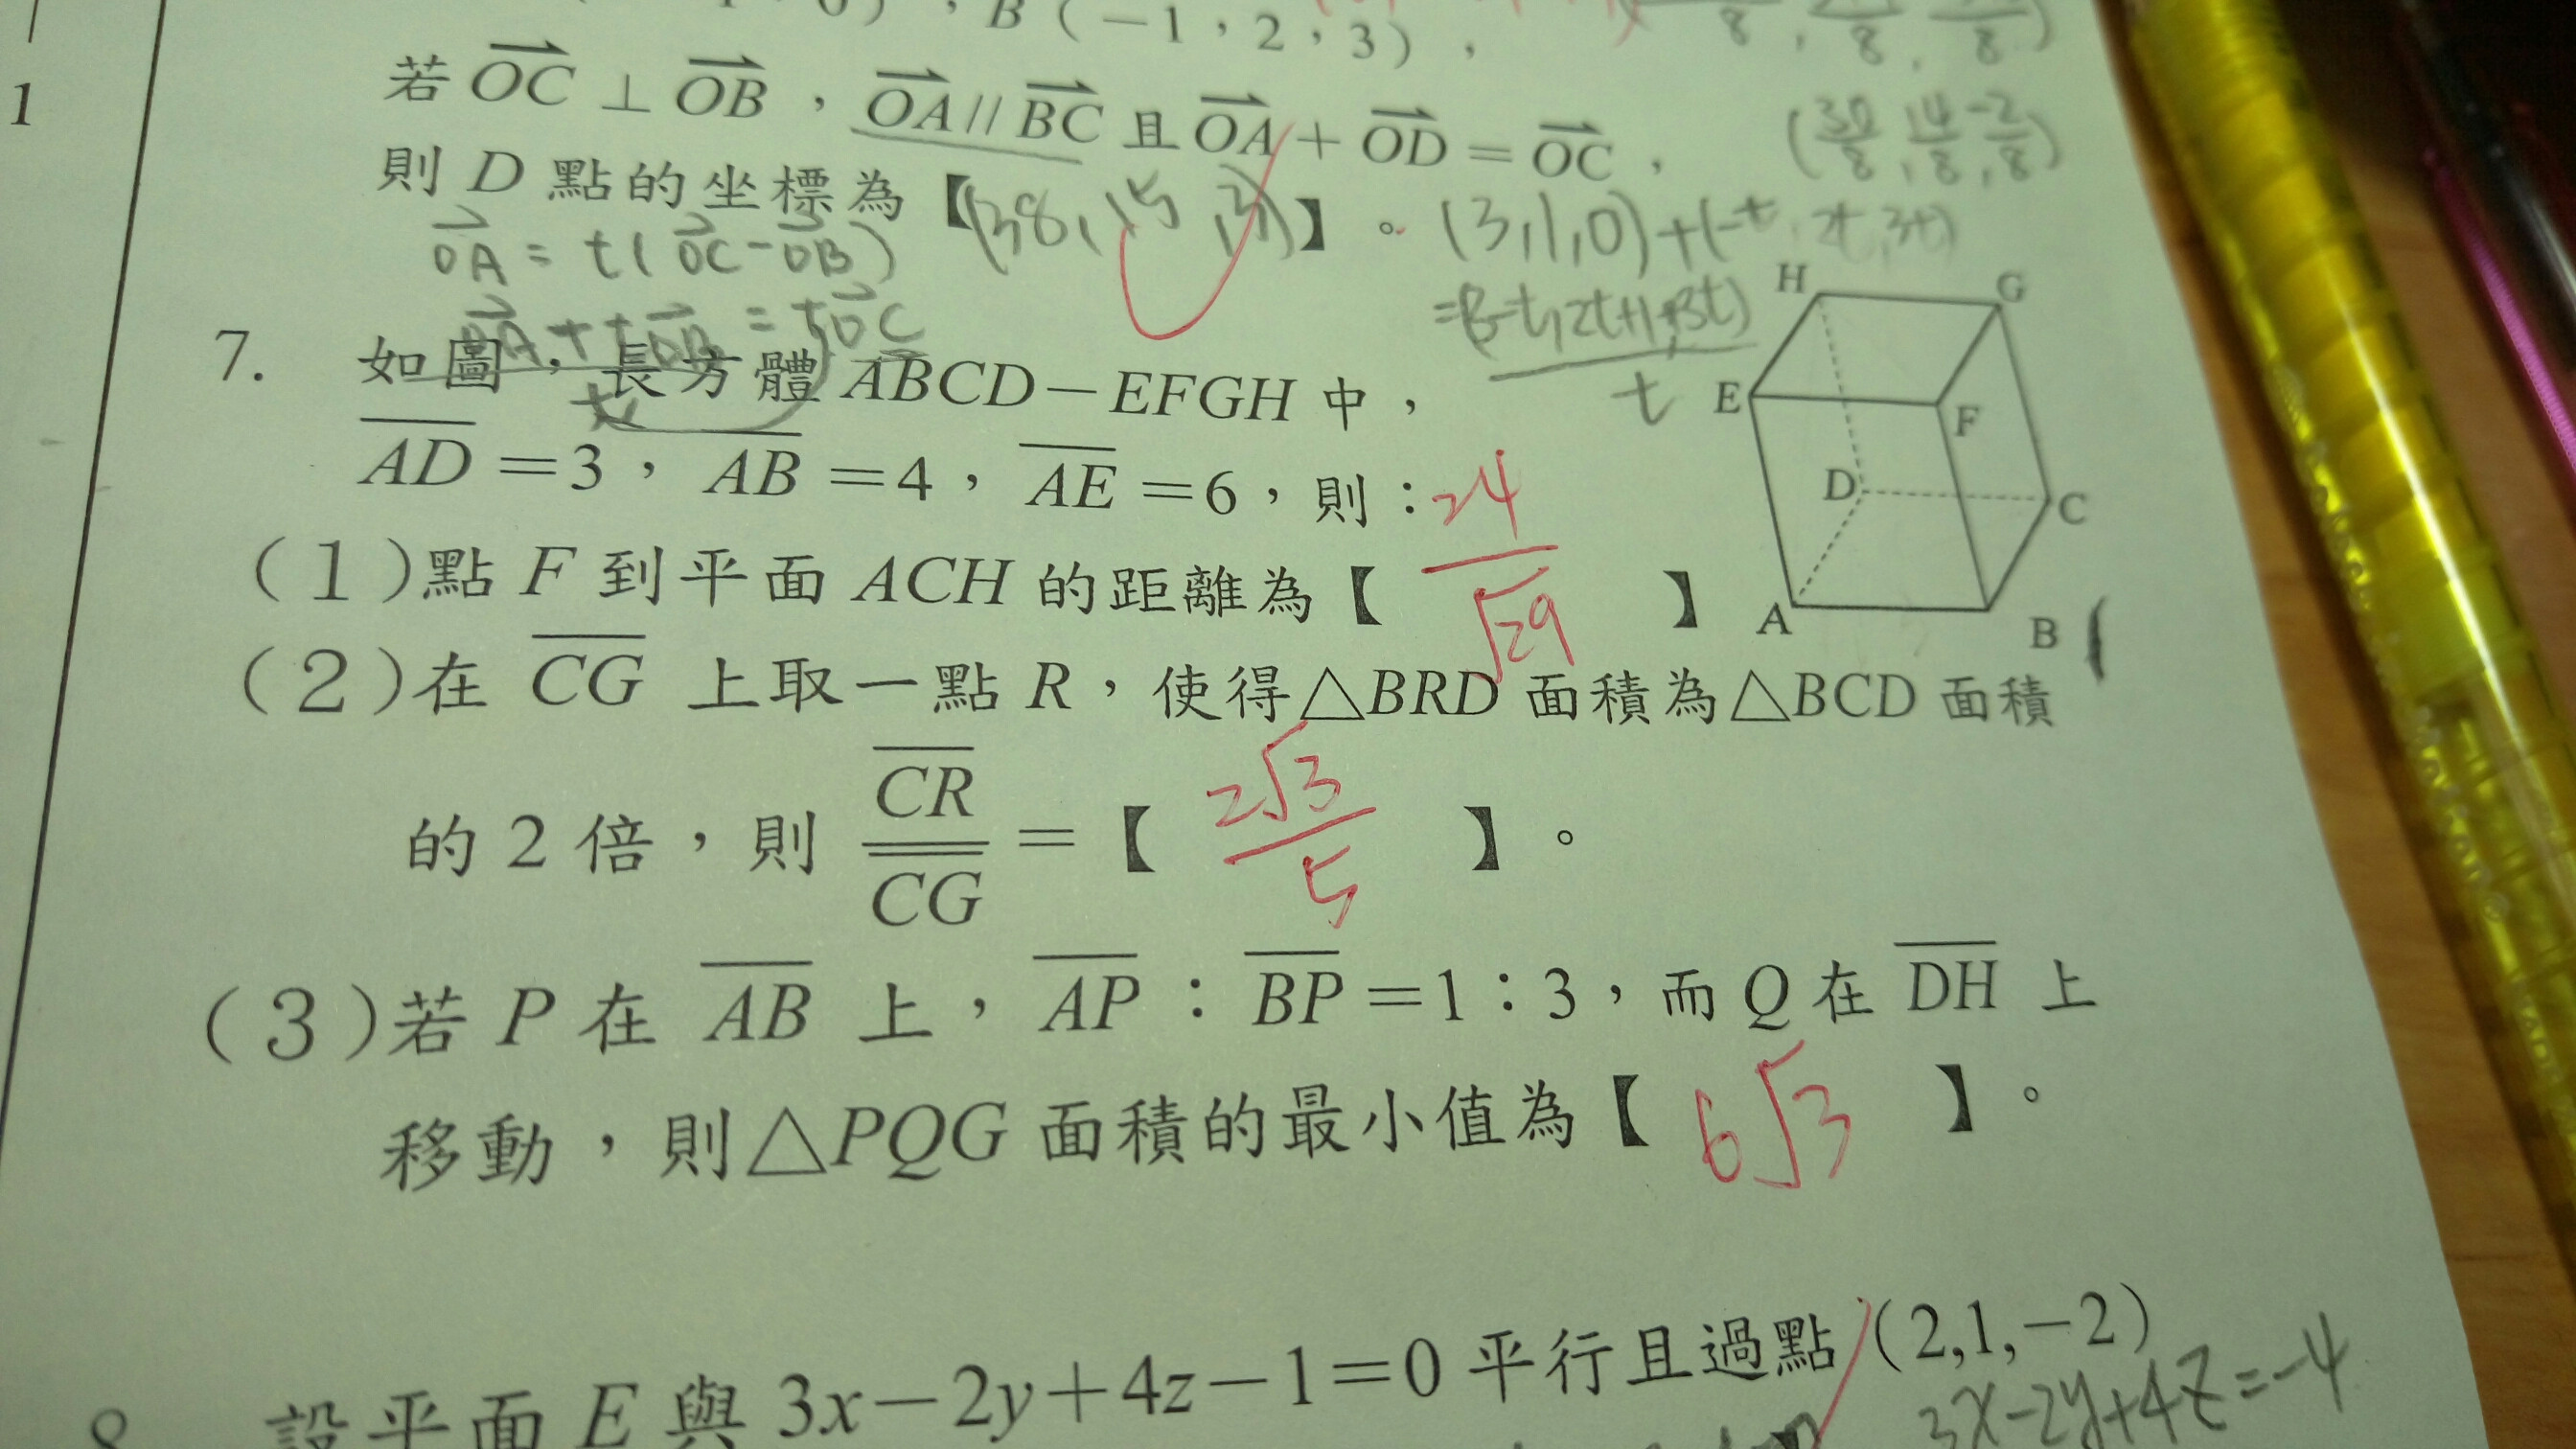 B(-1，2，3)，
1
若 OC ⊥ OB ， OA // BC 且 OA + OD = OC ，
則 D 點的坐標為【(38,15,3)】。
(30/8, 14/8, -2/8)
OA = t(OC-OB)
(3,1,0)+(-t,2t,3t)
OA + tOB = tOC
=(3-t,2t+1,3t)
t
7. 如圖，長方體 ABCD－EFGH 中，
AD＝3，AB＝4，AE＝6，則：
(1)點 F 到平面 ACH 的距離為【 24/√29 】
(2)在 CG 上取一點 R，使得△BRD 面積為△BCD 面積
的 2 倍，則 CR/CG ＝【 2√3/5 】。
(3)若 P 在 AB 上，AP：BP＝1：3，而 Q 在 DH 上
移動，則△PQG 面積的最小值為【 6√3 】。
H G
E F
D C
A B
設平面 E 與 3x－2y＋4z－1＝0 平行且過點 (2,1,－2)
3x-2y+4z=-4